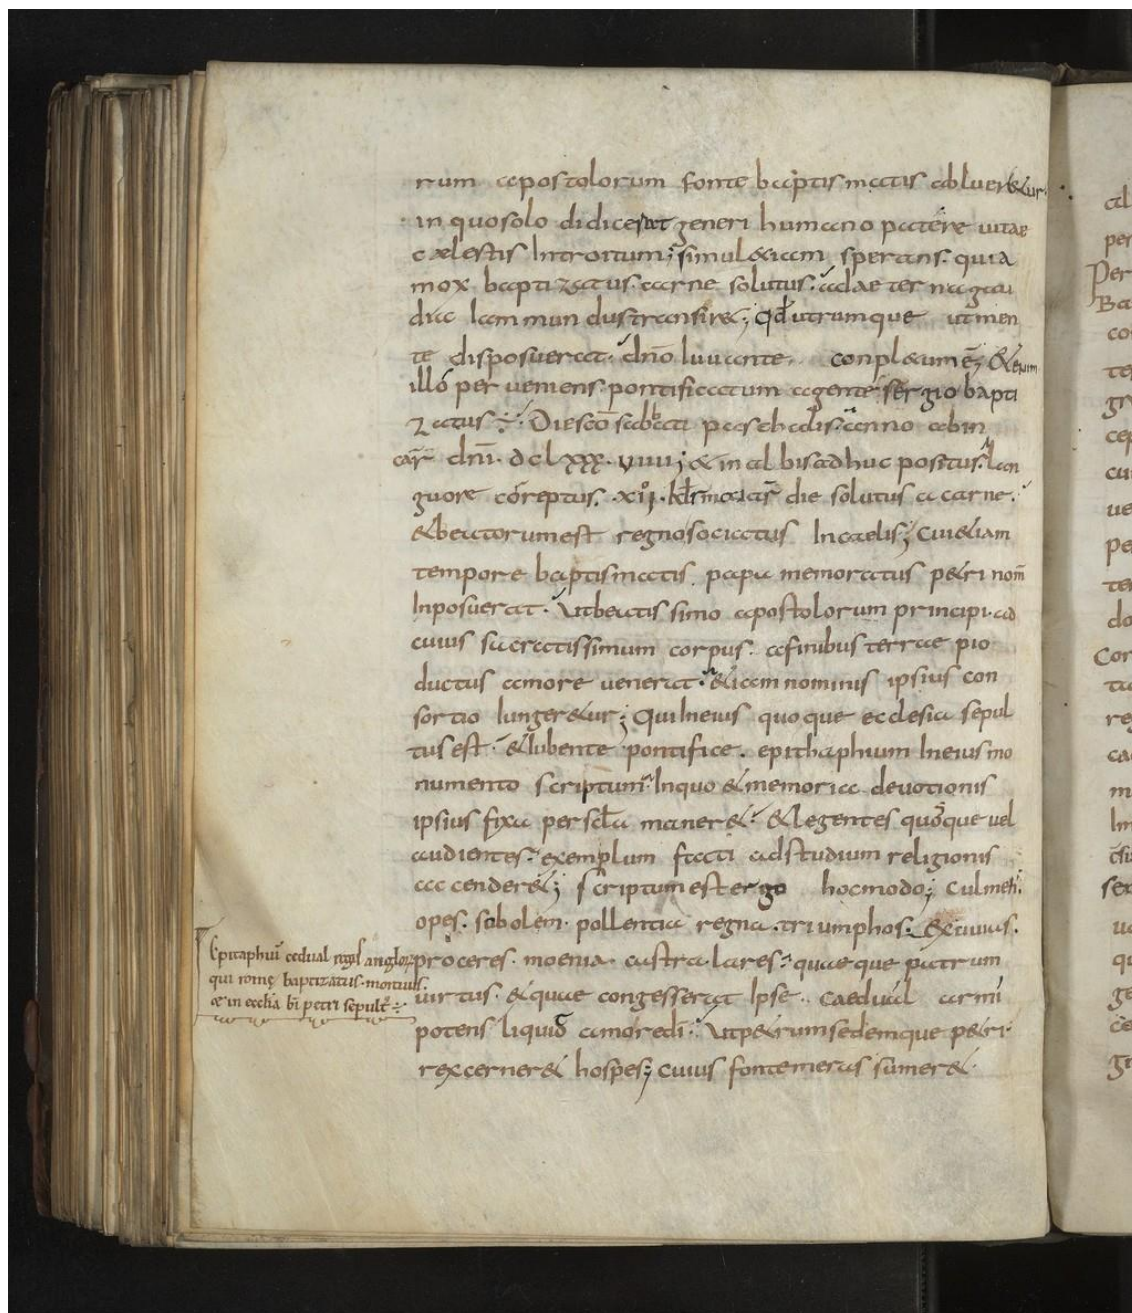 rum apostolorum fonte baptismatis abluer&ur.
in quo solo didicerat generi humano patére uitae
caelestis Introitum; simul &iam sperans. quia
mox baptizatus. carne solutus. ad aeterna gau
dia Iam mundus transir&; Qd utrumque ut men
te disposuerat. dnō Iuuante. conpl&um ē; & enim
illó perueniens. pontificatum agente sergio bapti
zatus ÷ Die scō sabbati paschadis. anno ab in
car̄ dnī. dclxxx. uiiii; & in albis adhuc positus. lan
guore córeptus. xii. kl maias die solutus a carne.
& beatorum est regno sociatus In caelis; Cui &iam
tempore baptismatis papa memoratus p&ri nom̄
Inposuerat. Ut beatissimo apostolorum principi. ad
cuius sacratissimum corpus. a finibus terrae pio
ductus amore uenerat. &iam nominis ipsius con
sortio Iunger&ur; Qui In eius quoque ecclesia sepul
tus est. & Iubente pontifice. epithaphium In eius mo
numento scriptum. In quo & memoria deuotionis
ipsius fyxa per scla maner&. & legentes quoque uel
audientes. exemplum facti ad studium religionis
accender&; scriptum est ergo hoc modo; Culmen.
opes. sobolem. pollentia regna. triumphos. Exuuias.
proceres. moenia. castra. lares. quaeque patrum
uirtus. & quae congesserat Ipse. Caedual armi
potens liquid amore dī. Ut p&rum sedemque p&ri.
rex cerner& hospes; Cuius fontem eras sumer&.
Epitaphiū cedual regis anglor
qui romę baptizatus. mortuus.
ac in ecclia bī petri sepult ÷